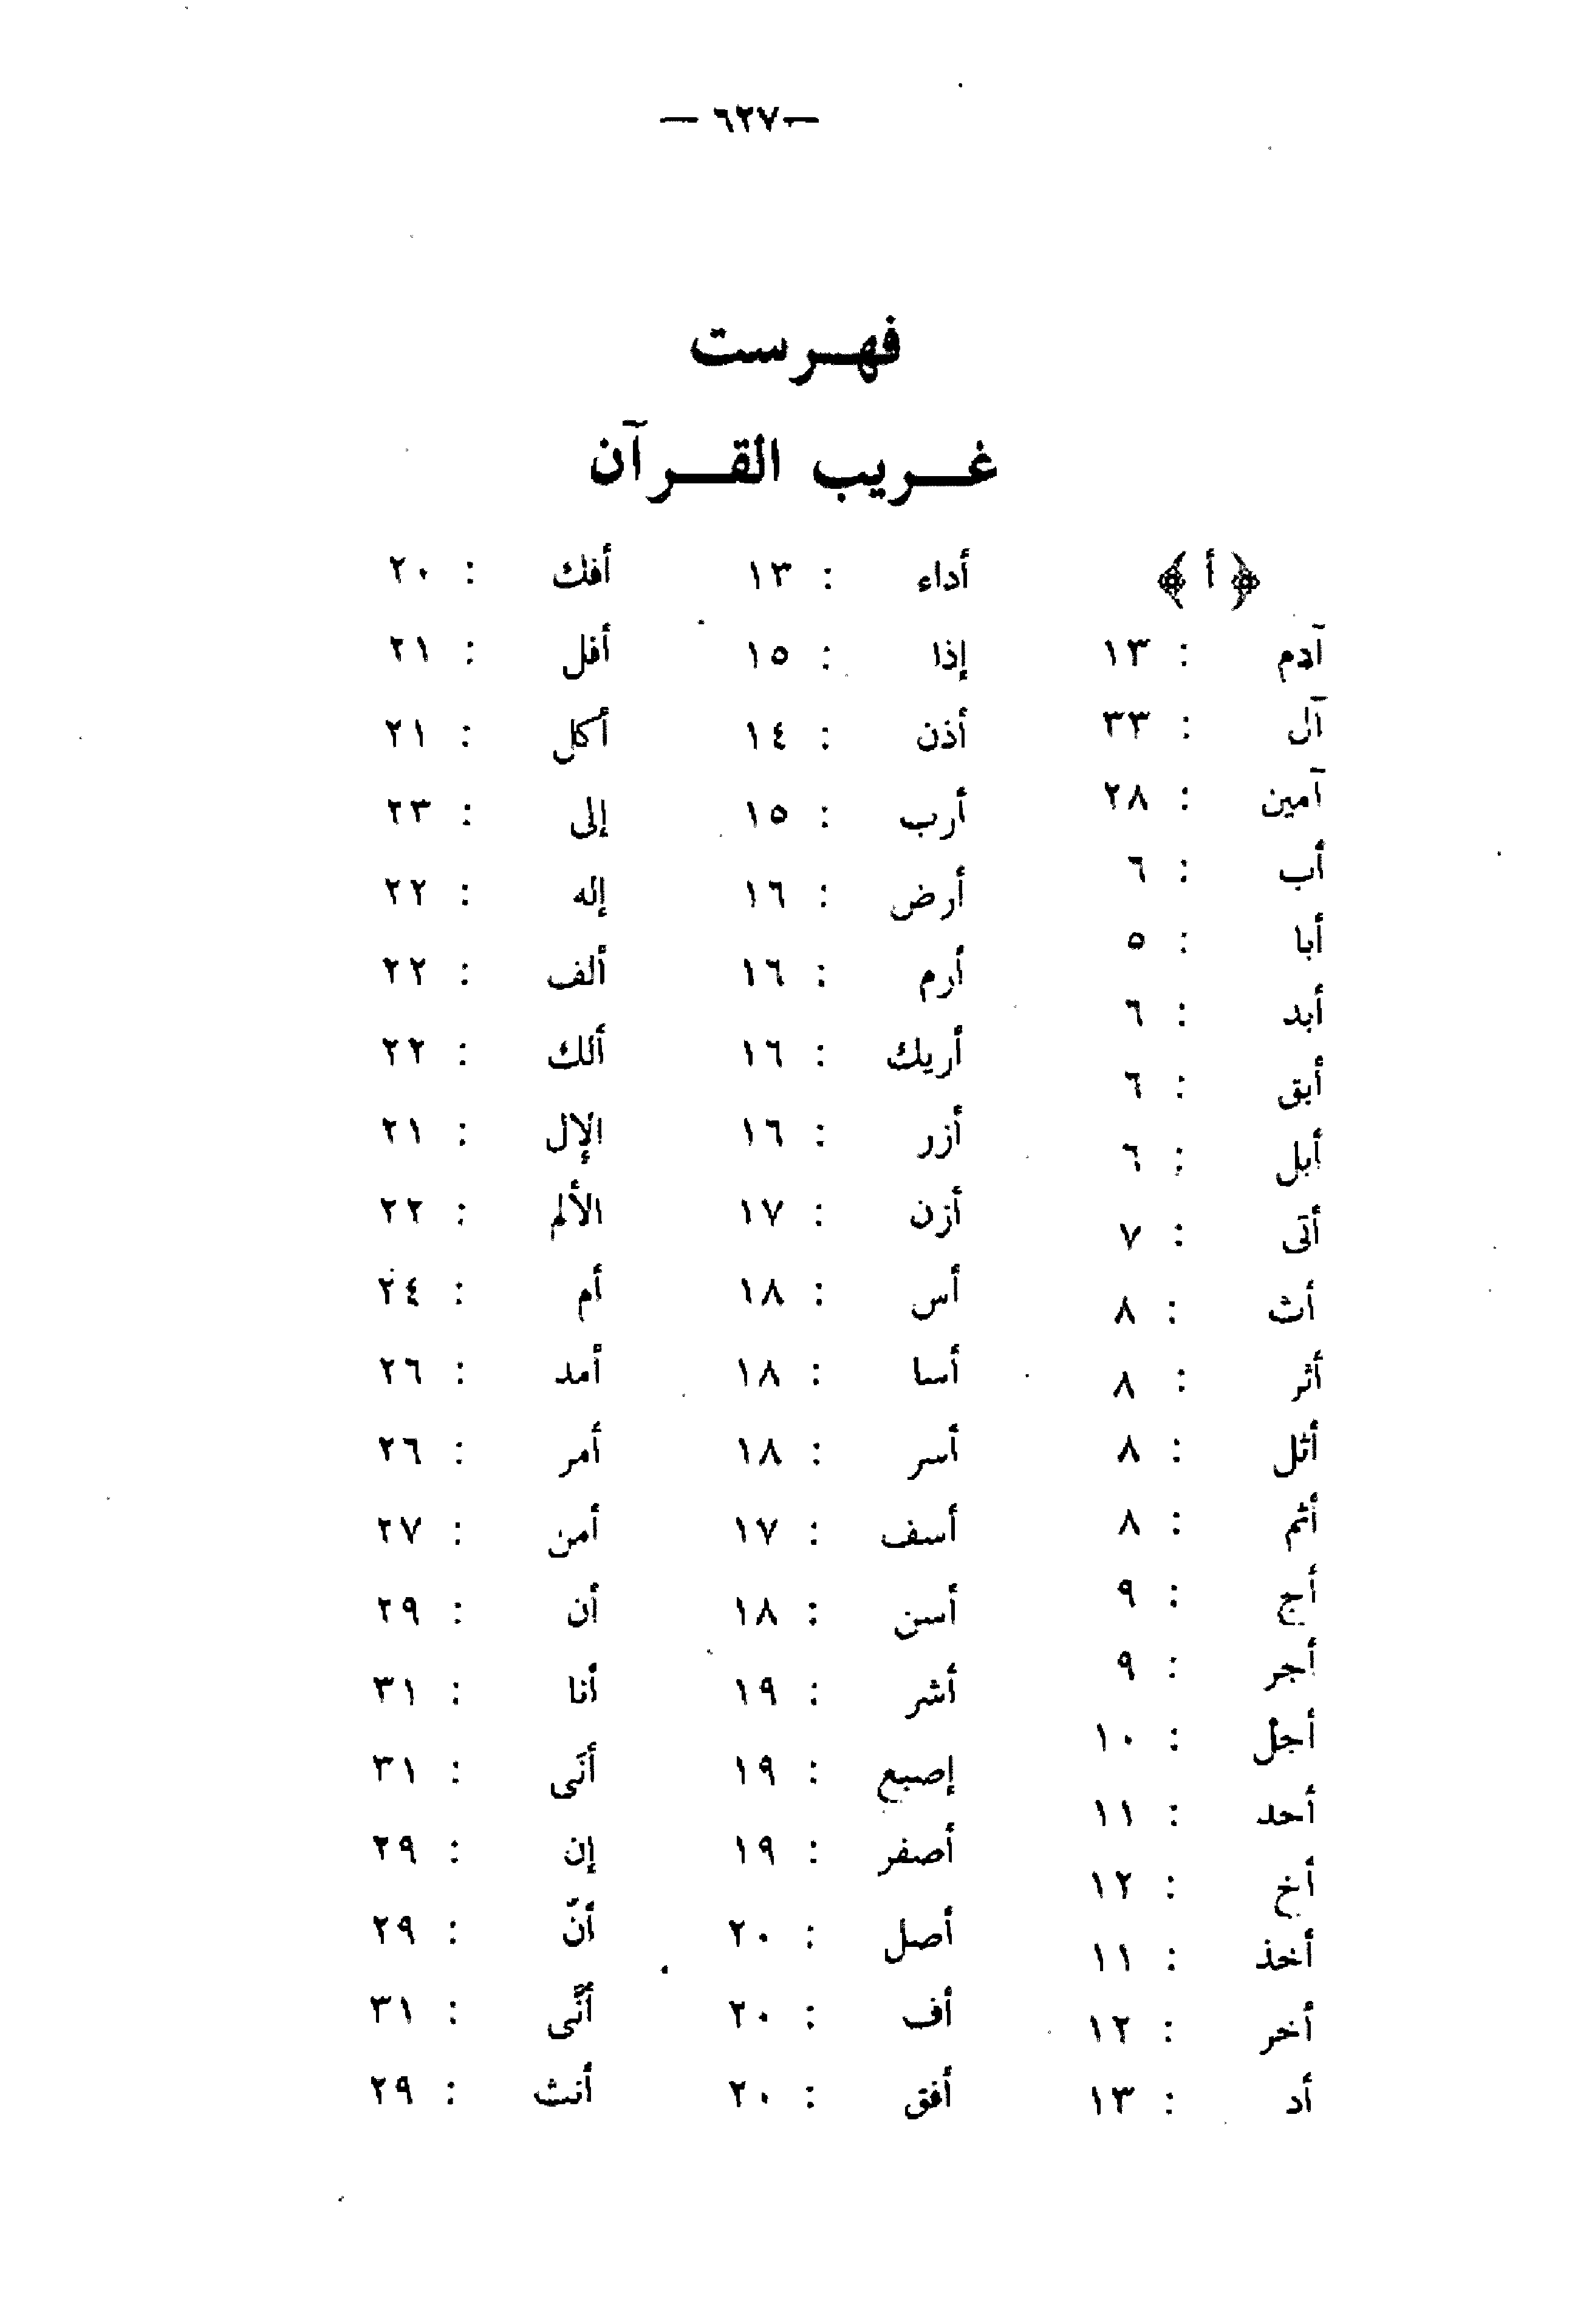 — ٦٢٧ —
فهرست
غريب القرآن
﴿ أ ﴾
آدم : ١٣
آل : ٣٣
آمين : ٢٨
أب : ٦
أبا : ٥
أبد : ٦
أبق : ٦
أبل : ٦
أتى : ٧
أث : ٨
أثر : ٨
أثل : ٨
أثم : ٨
أج : ٩
أجر : ٩
أجل : ١٠
أحد : ١١
أخ : ١٢
أخذ : ١١
أخر : ١٢
أد : ١٣
أداء : ١٣
إذا : ١٥
أذن : ١٤
أرب : ١٥
أرض : ١٦
أرم : ١٦
أريك : ١٦
أزر : ١٦
أزن : ١٧
أس : ١٨
أسا : ١٨
أسر : ١٨
أسف : ١٧
أسن : ١٨
أشر : ١٩
إصبع : ١٩
أصفر : ١٩
أصل : ٢٠
أف : ٢٠
أفق : ٢٠
أفك : ٢٠
أفل : ٢١
أكل : ٢١
إلى : ٢٣
إله : ٢٢
ألف : ٢٢
ألك : ٢٢
الإل : ٢١
الألم : ٢٢
أم : ٢٤
أمد : ٢٦
أمر : ٢٦
أمن : ٢٧
أن : ٢٩
أنا : ٣١
أنى : ٣١
إن : ٢٩
أن : ٢٩
أنّى : ٣١
أنث : ٢٩